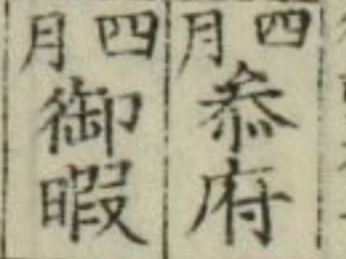 四月参府
四月御暇